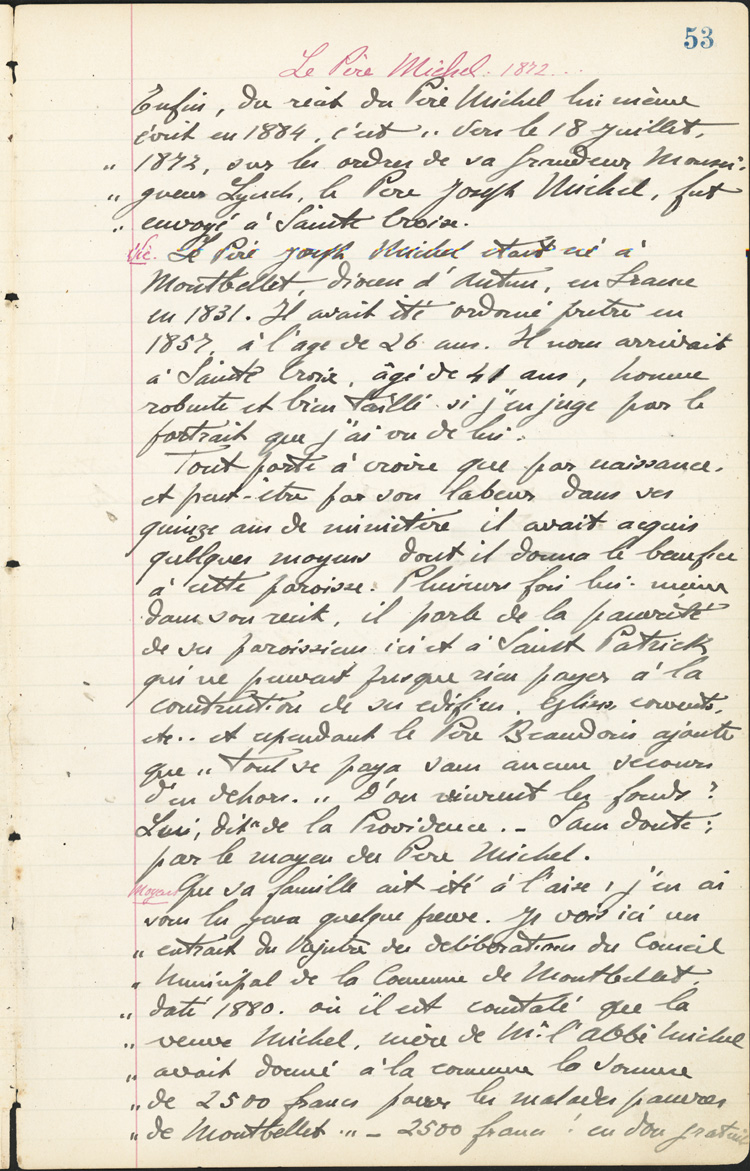 53
Le Père Michel. 1872...
Enfin, du récit du Père Michel lui même
écrit en 1884, c'est „ Vers le 18 Juillet,
„ 1872, sur les ordres de sa Grandeur Monsei-
„ gneur Lynch, le Père Joseph Michel, fut
„ envoyé à Sainte Croix.
Vie. Le Père Joseph Michel était né à
Montbellet, diocèse d'Autun, en France
en 1831. Il avait été ordonné prêtre en
1857, à l'age de 26 ans. Il nous arrivait
à Sainte Croix, âgé de 41 ans, homme
robuste et bien taillé si j'en juge par le
portrait que j'ai vu de lui.
Tout porte à croire que par naissance,
et peut-être par son labeur dans ses
quinze ans de ministère il avait acquis
quelques moyens dont il donna le bénéfice
à cette paroisse. Plusieurs fois lui-même
dans son récit, il parle de la pauvreté
de ses paroissiens ici et à Saint Patrick
qui ne peuvent presque rien payer à la
construction de ses édifices, églises, couvents,
etc.. et cependant le Père Beaudoin ajoute
que „ Tout se paya sans aucun secours
d'en dehors. „ D'où vinrent les fonds?
Lui, dit de la Providence. – Sans doute;
par le moyen du Père Michel.
Moyens Que sa famille ait été à l'aise, j'en ai
sous les yeux quelque preuve. Je vois ici un
„ extrait du Registre des délibérations du Conseil
„ Municipal de la Commune de Montbellet,
„ daté 1880. où il est constaté que la
„ veuve Michel, mère de Mr. l'abbé Michel
„ avait donné à la commune la somme
„ de 2500 francs pour les malades pauvres
„ de Montbellet „ – 2500 francs! en don gratuit